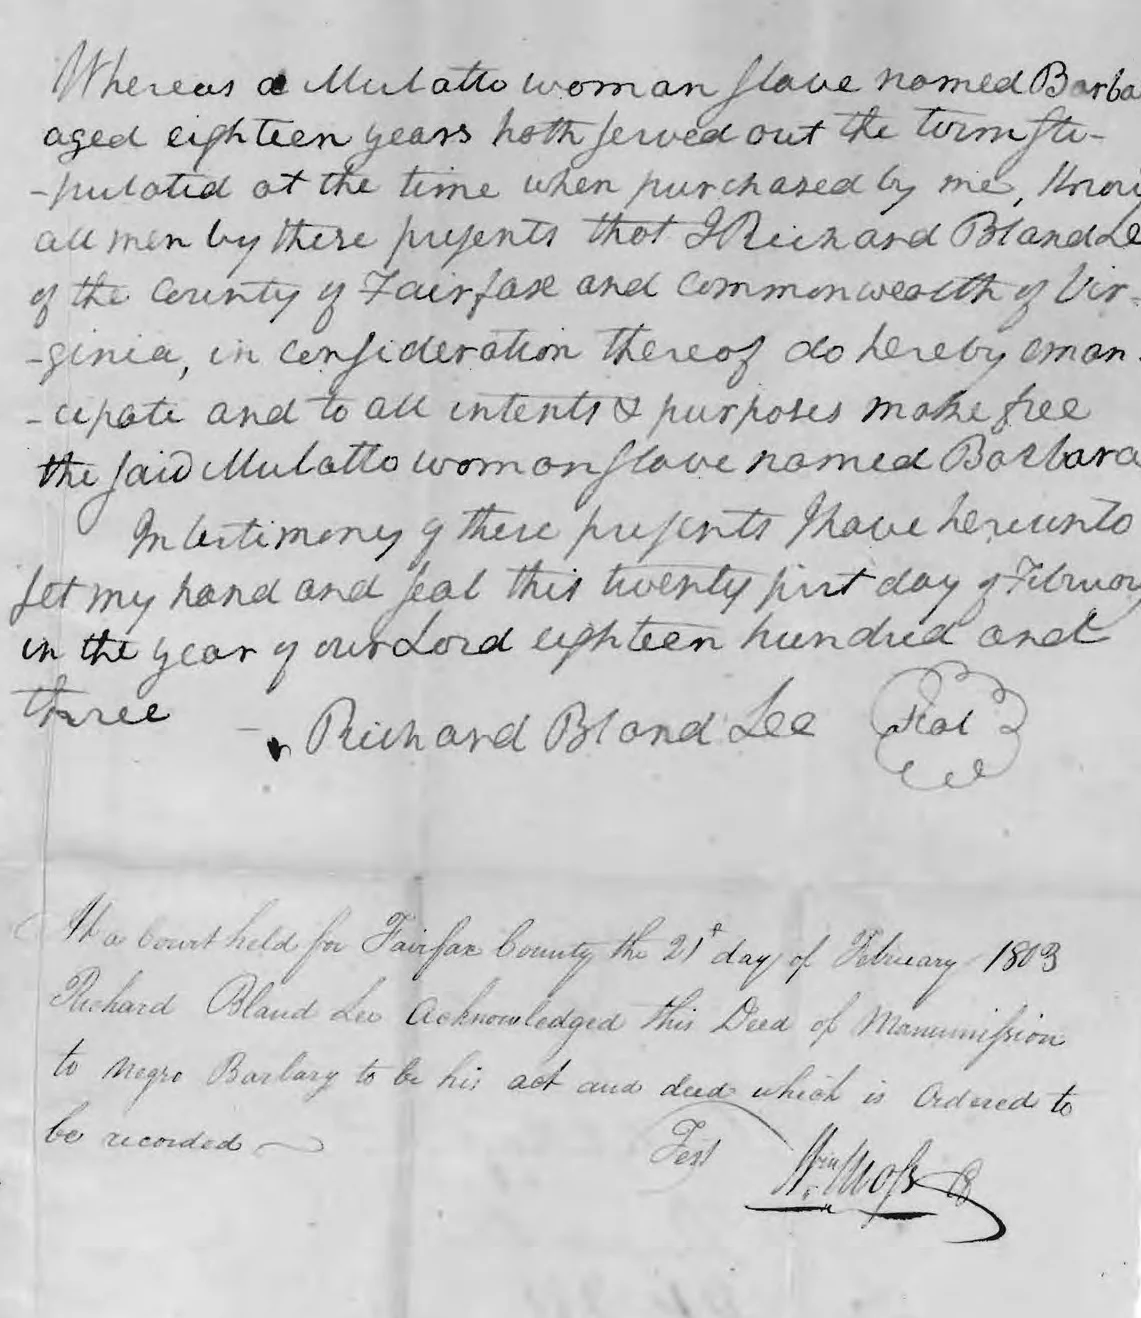 Whereas a Mulatto woman slave named Barba
aged eighteen years hath served out the term sti-
-pulated at the time when purchased by me, Know
all men by these presents that I Richard Bland Le
of the County of Fairfax and commonwealth of Vir-
-ginia, in consideration thereof do hereby eman-
-cipate and to all intents & purposes make free
the said Mulatto woman slave named Barbara
In testimony of these presents I have hereunto
set my hand and seal this twenty first day of February
in the year of our Lord eighteen hundred and
three - Richard Bland Lee Seal
At a Court held for Fairfax County the 21st day of February 1803
Richard Bland Lee Acknowledged this Deed of Manumission
to Negro Barbary to be his act and deed which is Ordered to
be recorded
Test Wm Moss